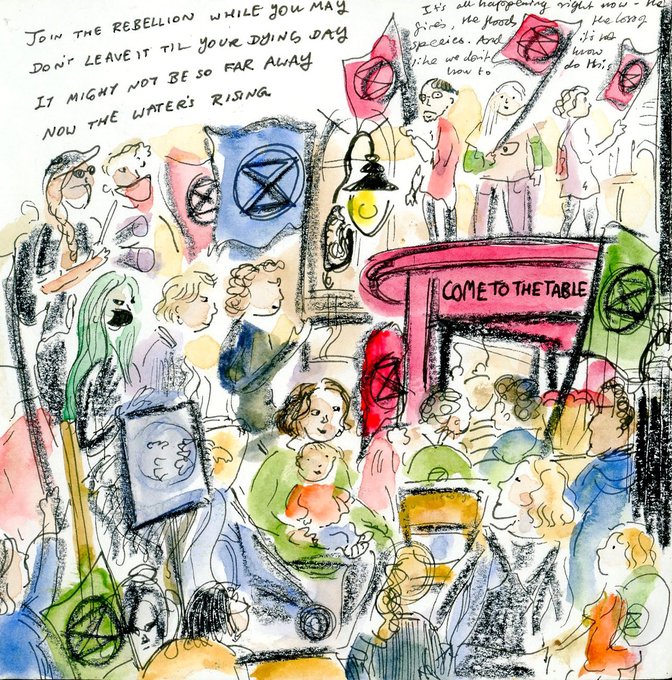 JOIN THE REBELLION WHILE YOU MAY
DON'T LEAVE IT TIL YOUR DYING DAY
IT MIGHT NOT BE SO FAR AWAY
NOW THE WATER'S RISING
It's all happening right now - the
fires, the floods, the loss of
species. And it's
like we don't know
how to do this
COME TO THE TABLE